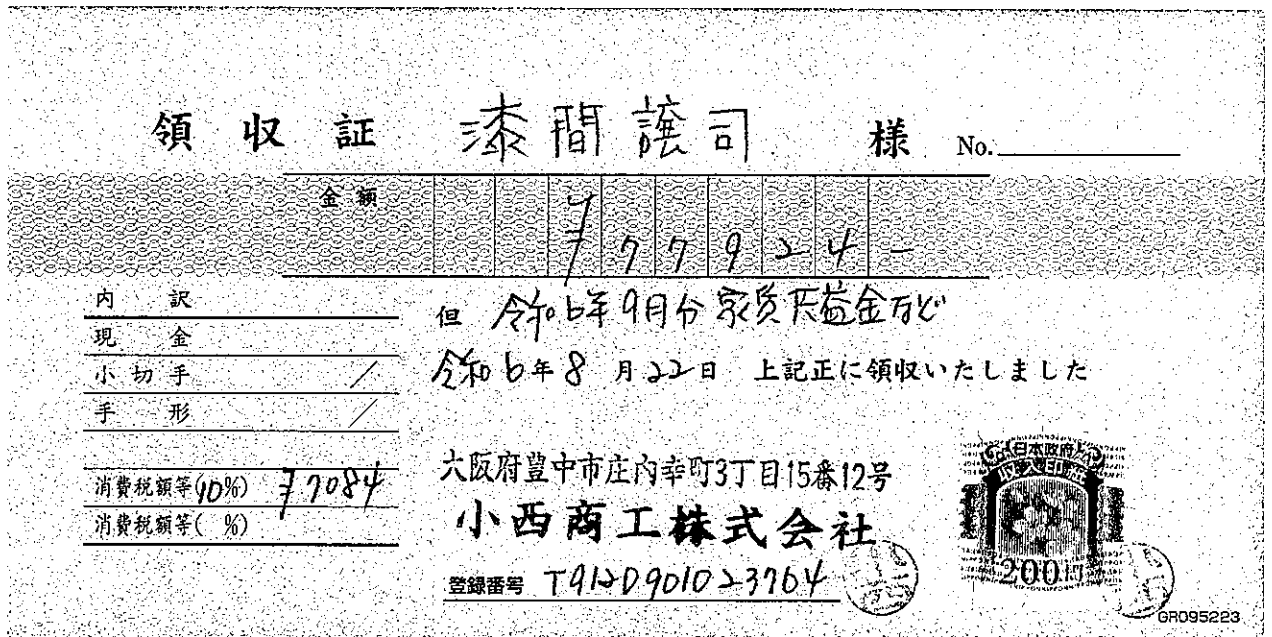 領収証 漆間譲司 様 No.
金額 ¥77924-
内訳
現金
小切手
手形
消費税額等(10%) ¥7084
消費税額等( %)
但 令和6年9月分家賃共益金など
令和6年8月22日 上記正に領収いたしました
大阪府豊中市庄内幸町3丁目15番12号
小西商工株式会社
登録番号 T9120901023764
日本政府
200円
GR095223